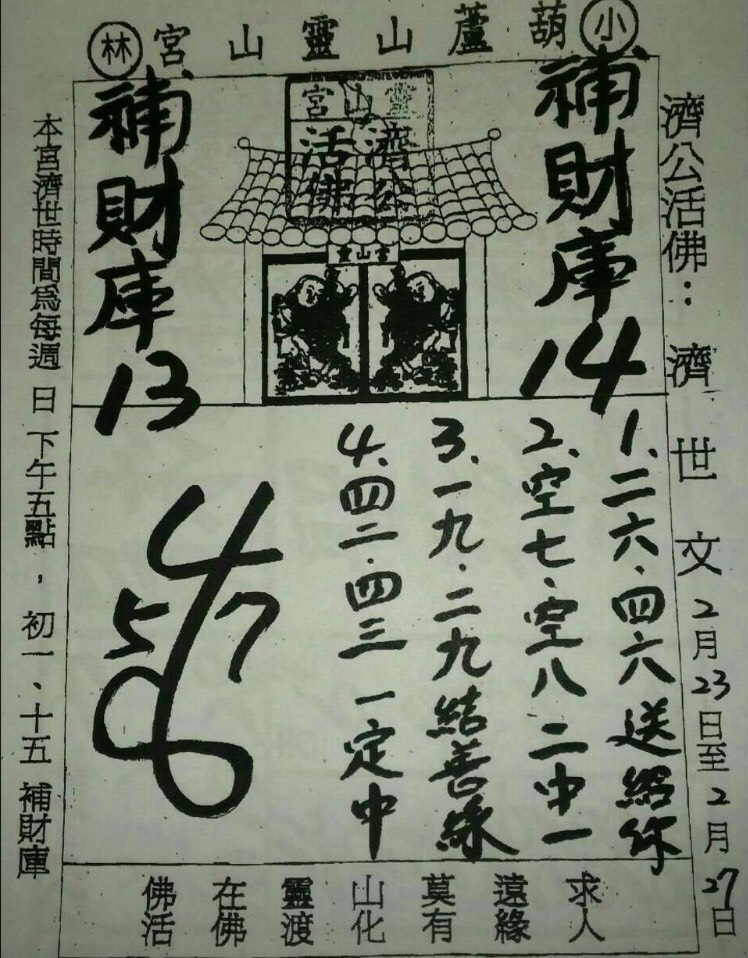 小 葫蘆山靈山宮 林
濟公活佛：濟世文 2月23日至2月27日
補財庫14
靈山宮
濟公
活佛
靈山宮
補財庫13
1、二六、四六送給你
2、空七、空八二中一
3、一九、二九結善緣
4、四二、四三一定中
4
5
7
6
佛在靈山莫遠求
活佛渡化有緣人
本宮濟世時間為每週日下午五點，初一、十五補財庫